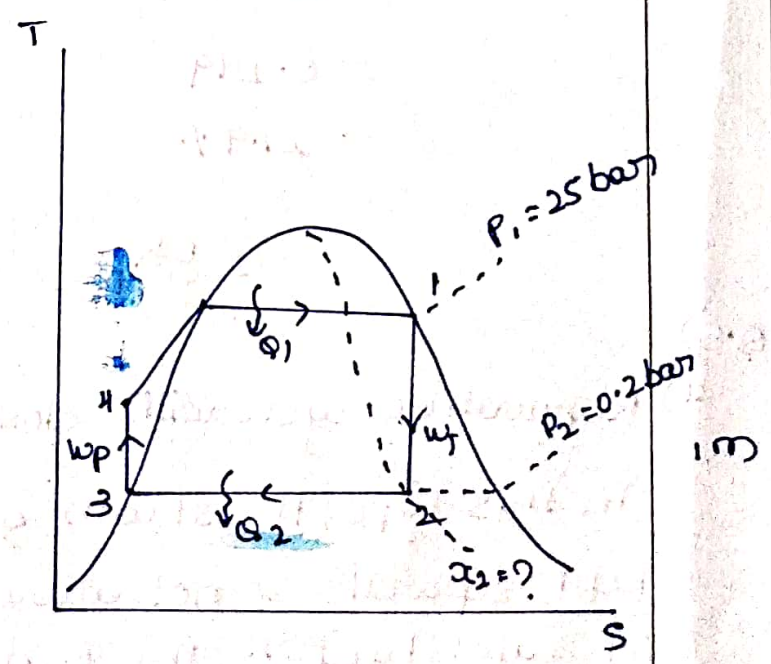 T
P₁ = 25 bar
1
Q₁
4
Wp
WT
P₂ = 0.2 bar
1m
3
Q₂
2
x₂ = ?
S